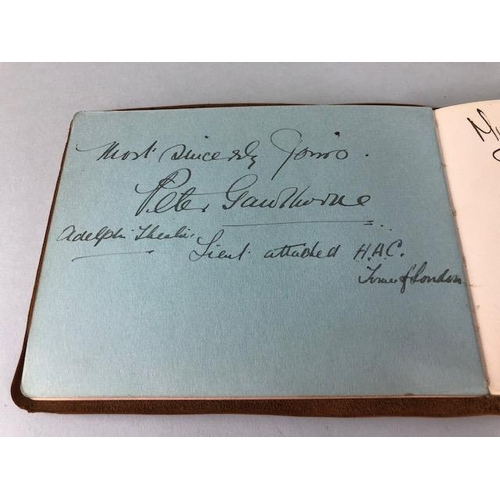 Most sincerely yours.
Peter Gawthorne
Adelphi Theatre
Lieut attached H.A.C.
Tower of London